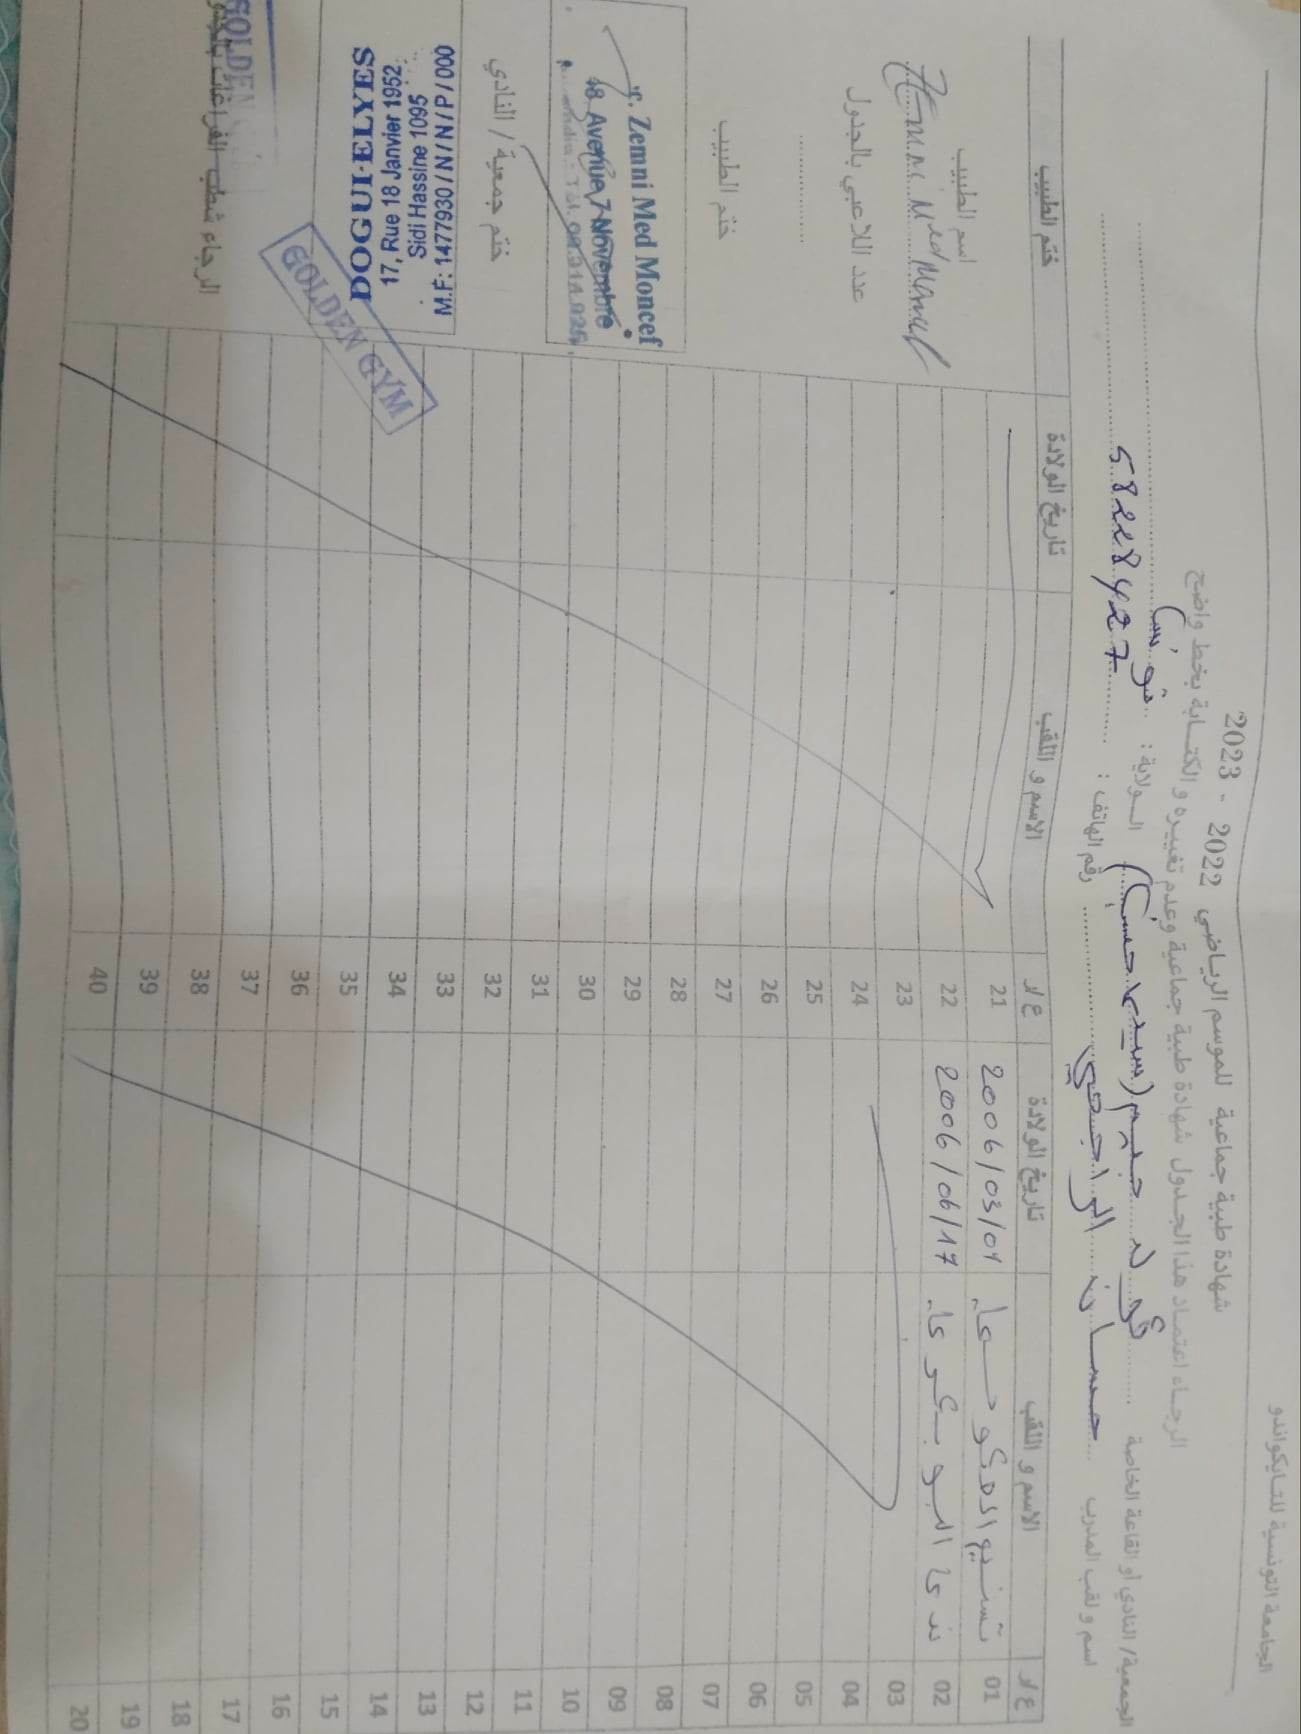 الجامعة التونسية للتايكواندو
شهادة طبية جماعية للموسم الرياضي 2022 - 2023
الرجاء اعتماد هذا الجدول شهادة طبية جماعية وعدم تغييره و الكتابة بخط واضح
الجمعية/ النادي أو القاعة الخاصة ڨولد جيم (سيدي حسين) الولاية: تونس
اسم و لقب المدرب حسان الراجحي رقم الهاتف: 58228427
ع/د الاسم و اللقب تاريخ الولادة ع/د الاسم و اللقب تاريخ الولادة ختم الطبيب
01 2006/03/01 21
02 2006/06/17 22
03 23
04 24
05 25
06 26
07 27
08 28
09 29
10 30
11 31
12 32
13 33
14 34
15 35
16 36
17 37
18 38
19 39
20 40
اسم الطبيب
عدد اللاعبي بالجدول
ختم الطبيب
Zemni Med Moncef
48 Avenue 7 Novembre
ختم جمعية / النادي
DOGUI ELYES
17, Rue 18 Janvier 1952
Sidi Hassine 1095
M.F: 1477930 / N / N / P / 000
GOLDEN GYM
الرجاء شطب الفراغات
GOLDEN